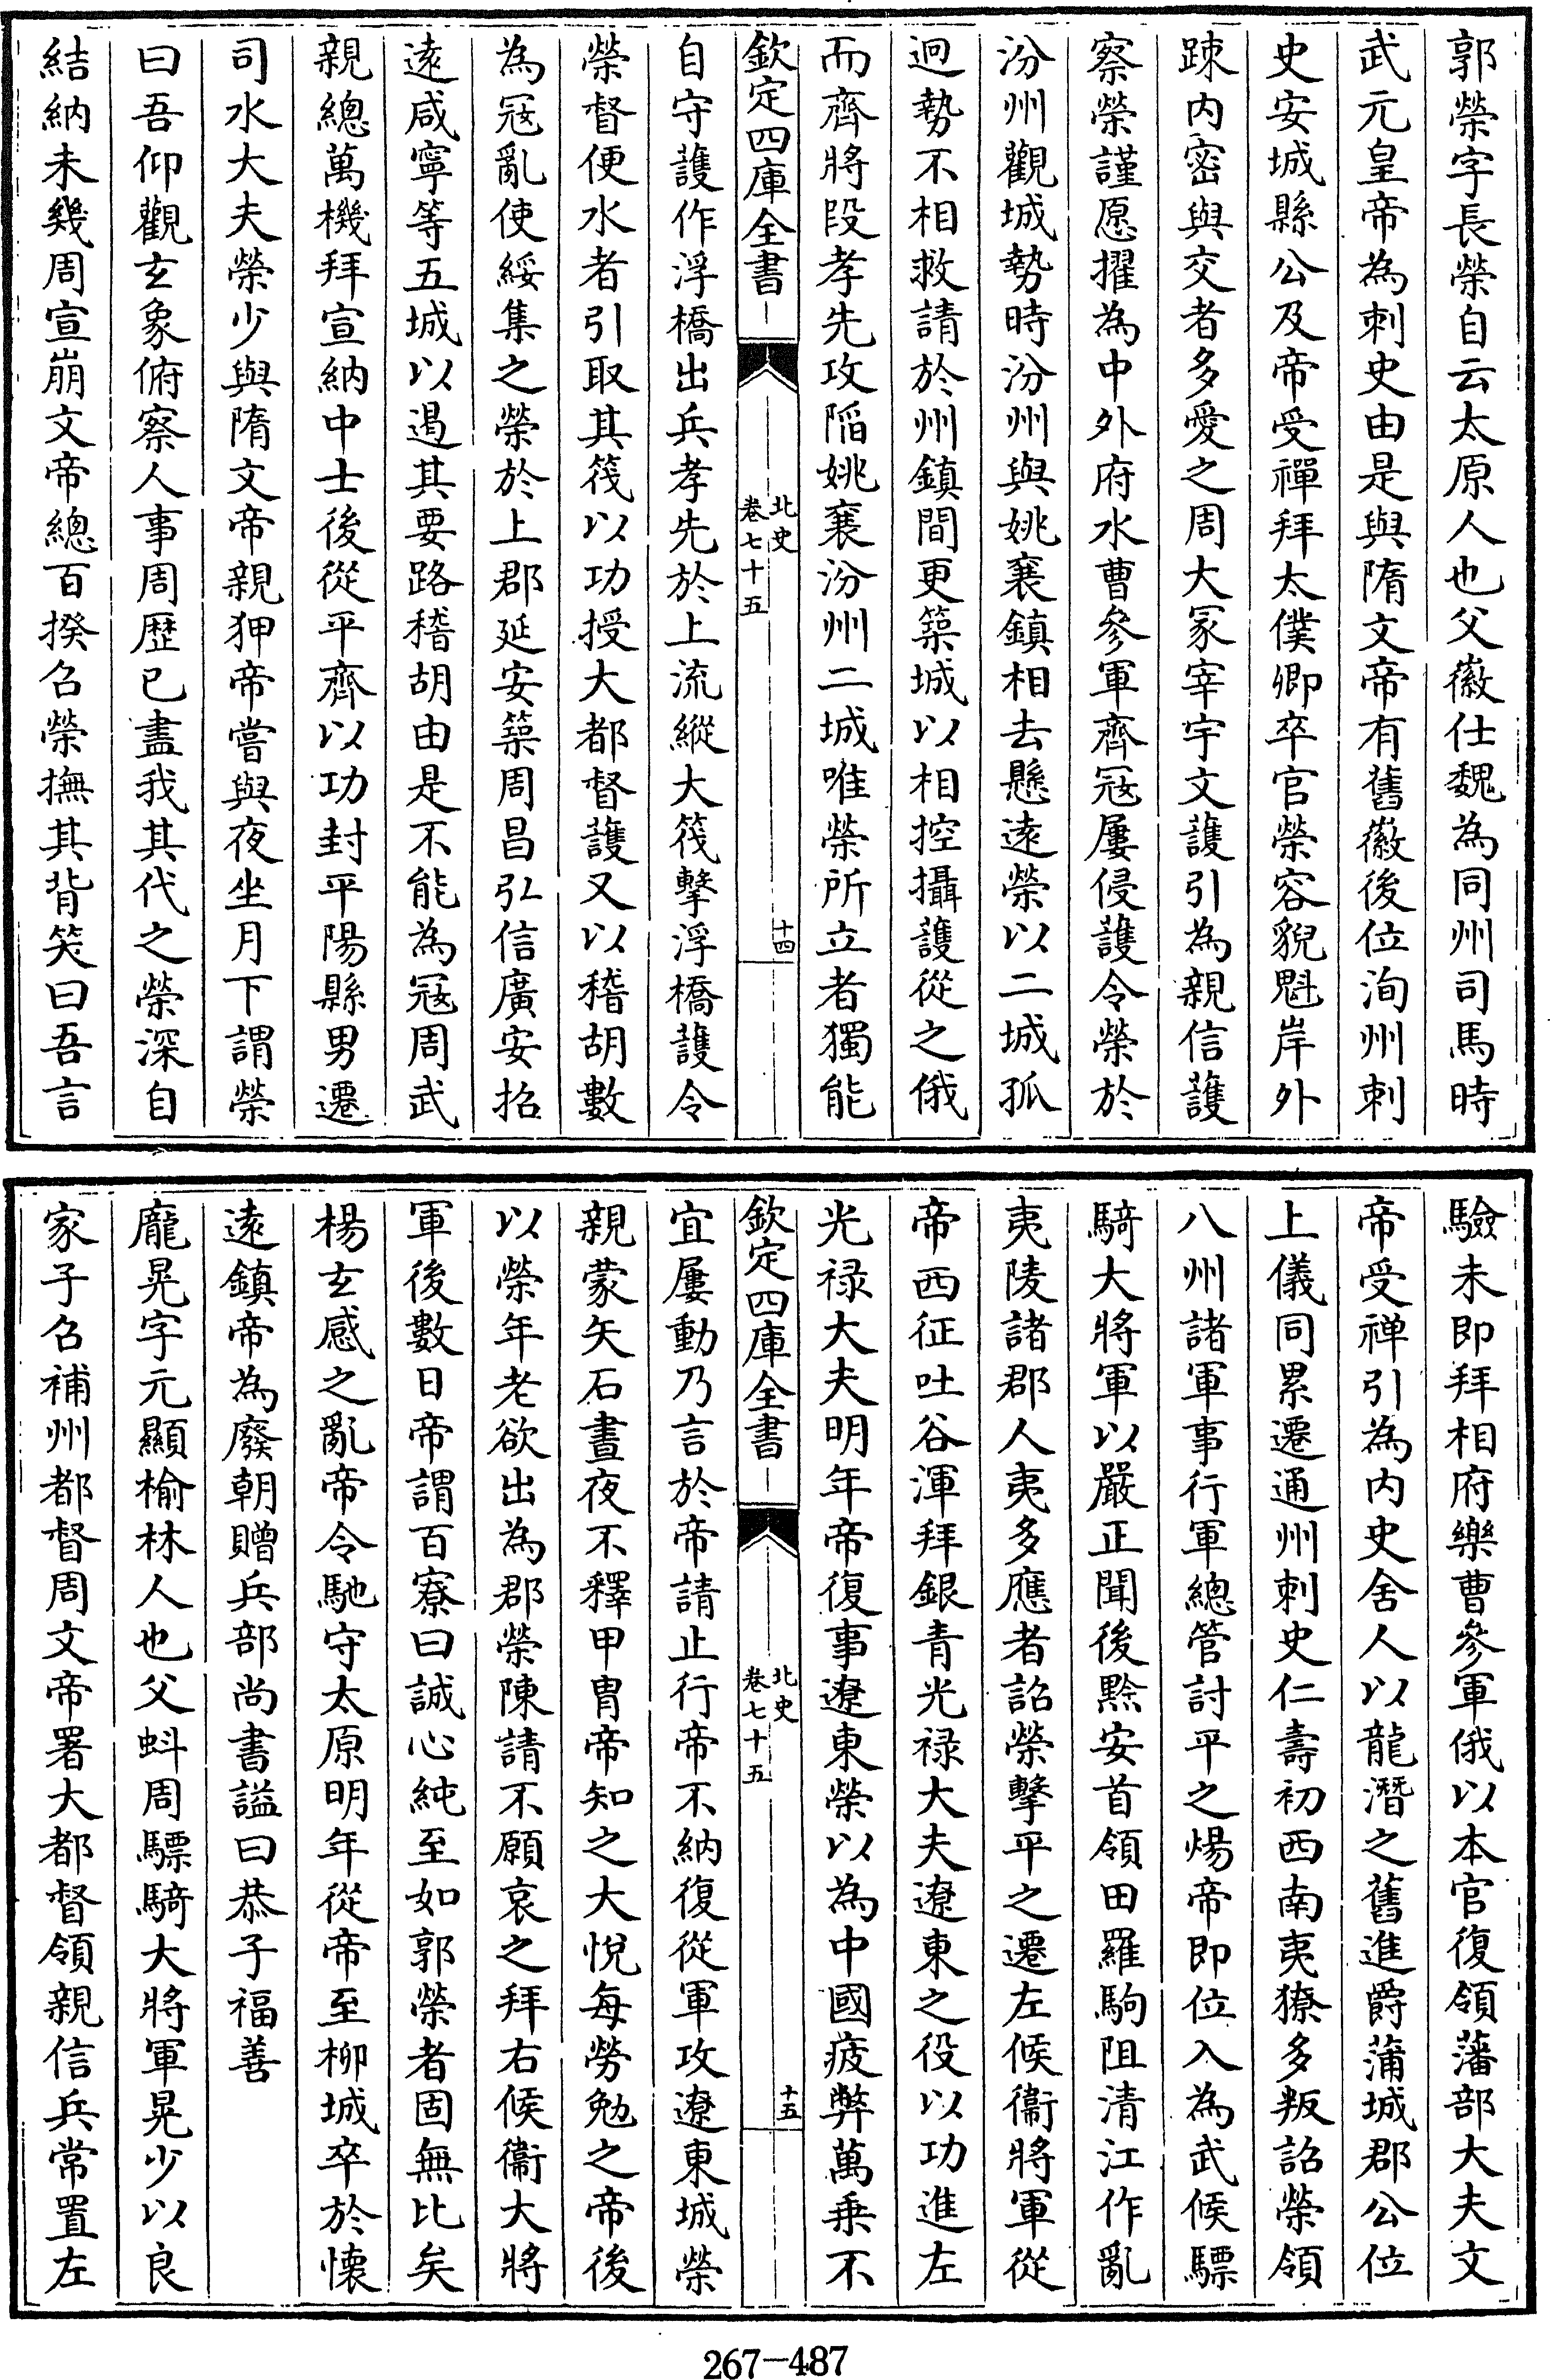 郭榮字長榮自云太原人也父徽仕魏為同州司馬時
武元皇帝為刺史由是與隋文帝有舊徽後位洵州刺
史安城縣公及帝受禪拜太僕卿卒官榮容貌魁岸外
踈内密與交者多愛之周大冢宰宇文護引為親信護
察榮謹愿擢為中外府水曹參軍齊冦屢侵護令榮於
汾州觀城勢時汾州與姚襄鎮相去懸逺榮以二城孤
逈勢不相救請於州鎮間更築城以相控攝護從之俄
而齊將段孝先攻陷姚襄汾州二城唯榮所立者獨能
欽定四庫全書
北史
卷七十五
十四
自守護作浮橋出兵孝先於上流縱大筏擊浮橋護令
榮督便水者引取其筏以功授大都督護又以稽胡數
為冦亂使綏集之榮於上郡延安築周昌弘信廣安招
逺咸寧等五城以遏其要路稽胡由是不能為冦周武
親總萬機拜宣納中士後從平齊以功封平陽縣男遷
司水大夫榮少與隋文帝親狎帝嘗與夜坐月下謂榮
曰吾仰觀玄象俯察人事周歴已盡我其代之榮深自
結納未幾周宣崩文帝總百揆召榮撫其背笑曰吾言
驗未即拜相府樂曹參軍俄以本官復領藩部大夫文
帝受禅引為内史舍人以龍潛之舊進爵蒲城郡公位
上儀同累遷通州刺史仁壽初西南夷獠多叛詔榮領
八州諸軍事行軍總管討平之煬帝即位入為武候驃
騎大將軍以嚴正聞後黔安首領田羅駒阻清江作亂
夷陵諸郡人夷多應者詔榮擊平之遷左候衞將軍從
帝西征吐谷渾拜銀青光禄大夫遼東之役以功進左
光禄大夫明年帝復事遼東榮以為中國疲弊萬乗不
欽定四庫全書
北史
卷七十五
十五
宜屢動乃言於帝請止行帝不納復從軍攻遼東城榮
親蒙矢石晝夜不釋甲胄帝知之大悅每勞勉之帝後
以榮年老欲出為郡榮陳請不願哀之拜右候衞大將
軍後數日帝謂百寮曰誠心純至如郭榮者固無比矣
楊玄感之亂帝令馳守太原明年從帝至栁城卒於懐
逺鎮帝為廢朝贈兵部尚書謚曰恭子福善
龐晃字元顯榆林人也父蚪周驃騎大將軍晃少以良
家子召補州都督周文帝署大都督領親信兵常置左
267-487